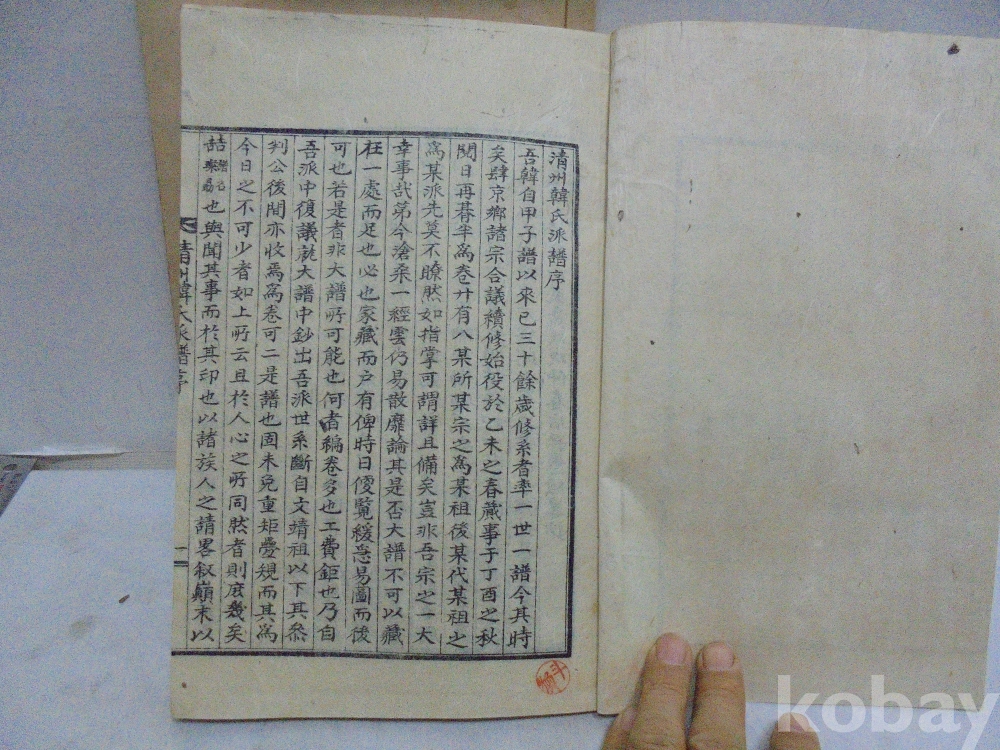 清州韓氏派譜序
吾韓自甲子譜以來已三十餘歲修系者率一世一譜今其時
矣肆京鄉諸宗合議續修始役於乙未之春蕆事于丁酉之秋
閱日再朞半爲卷廿有八某所某宗之爲某祖後某代某祖之
爲某派先莫不瞭然如指掌可謂詳且備矣豈非吾宗之一大
幸事哉第今滄桒一經雲仍易散靡論其是否大譜不可以藏
在一處而足也必也家藏而戶有俾時日便覽緩急易圖而後
可也若是者非大譜所可能也何者編卷多也工費鉅也乃自
吾派中復議就大譜中鈔出吾派世系斷自文靖祖以下其叅
判公後間亦收焉爲卷可二是譜也固未免重矩疊規而其爲
今日之不可少者如上所云且於人心之所同然者則庶幾矣
喆也與聞其事而於其印也以諸族人之請畧叙巔末以
清州韓氏派譜序
一
kobay